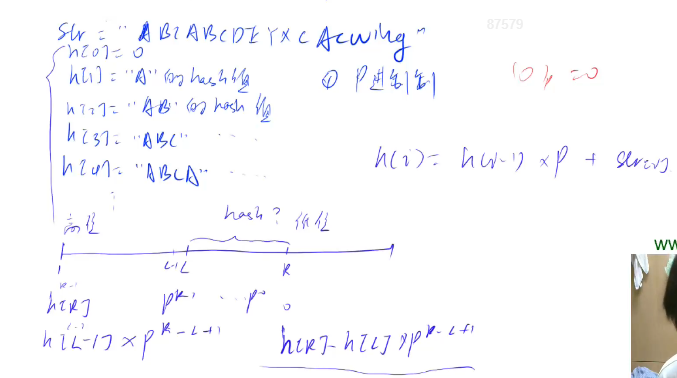 87579
str = "ABCABCDEYXCAcwing"
h[0] = 0
h[1] = "A" 的 hash 值
h[2] = "AB" 的 hash 值
h[3] = "ABC" ....
h[4] = "ABCA" ....
① P进制
h(i) = h(i-1) × P + str[i]
hash?
高位 低位
1 L-1 L R
R-1 0
h[R] P^R-1 ... P^0
h[L-1] × P^R-L+1
h[R] - h[L] × P^R-L+1